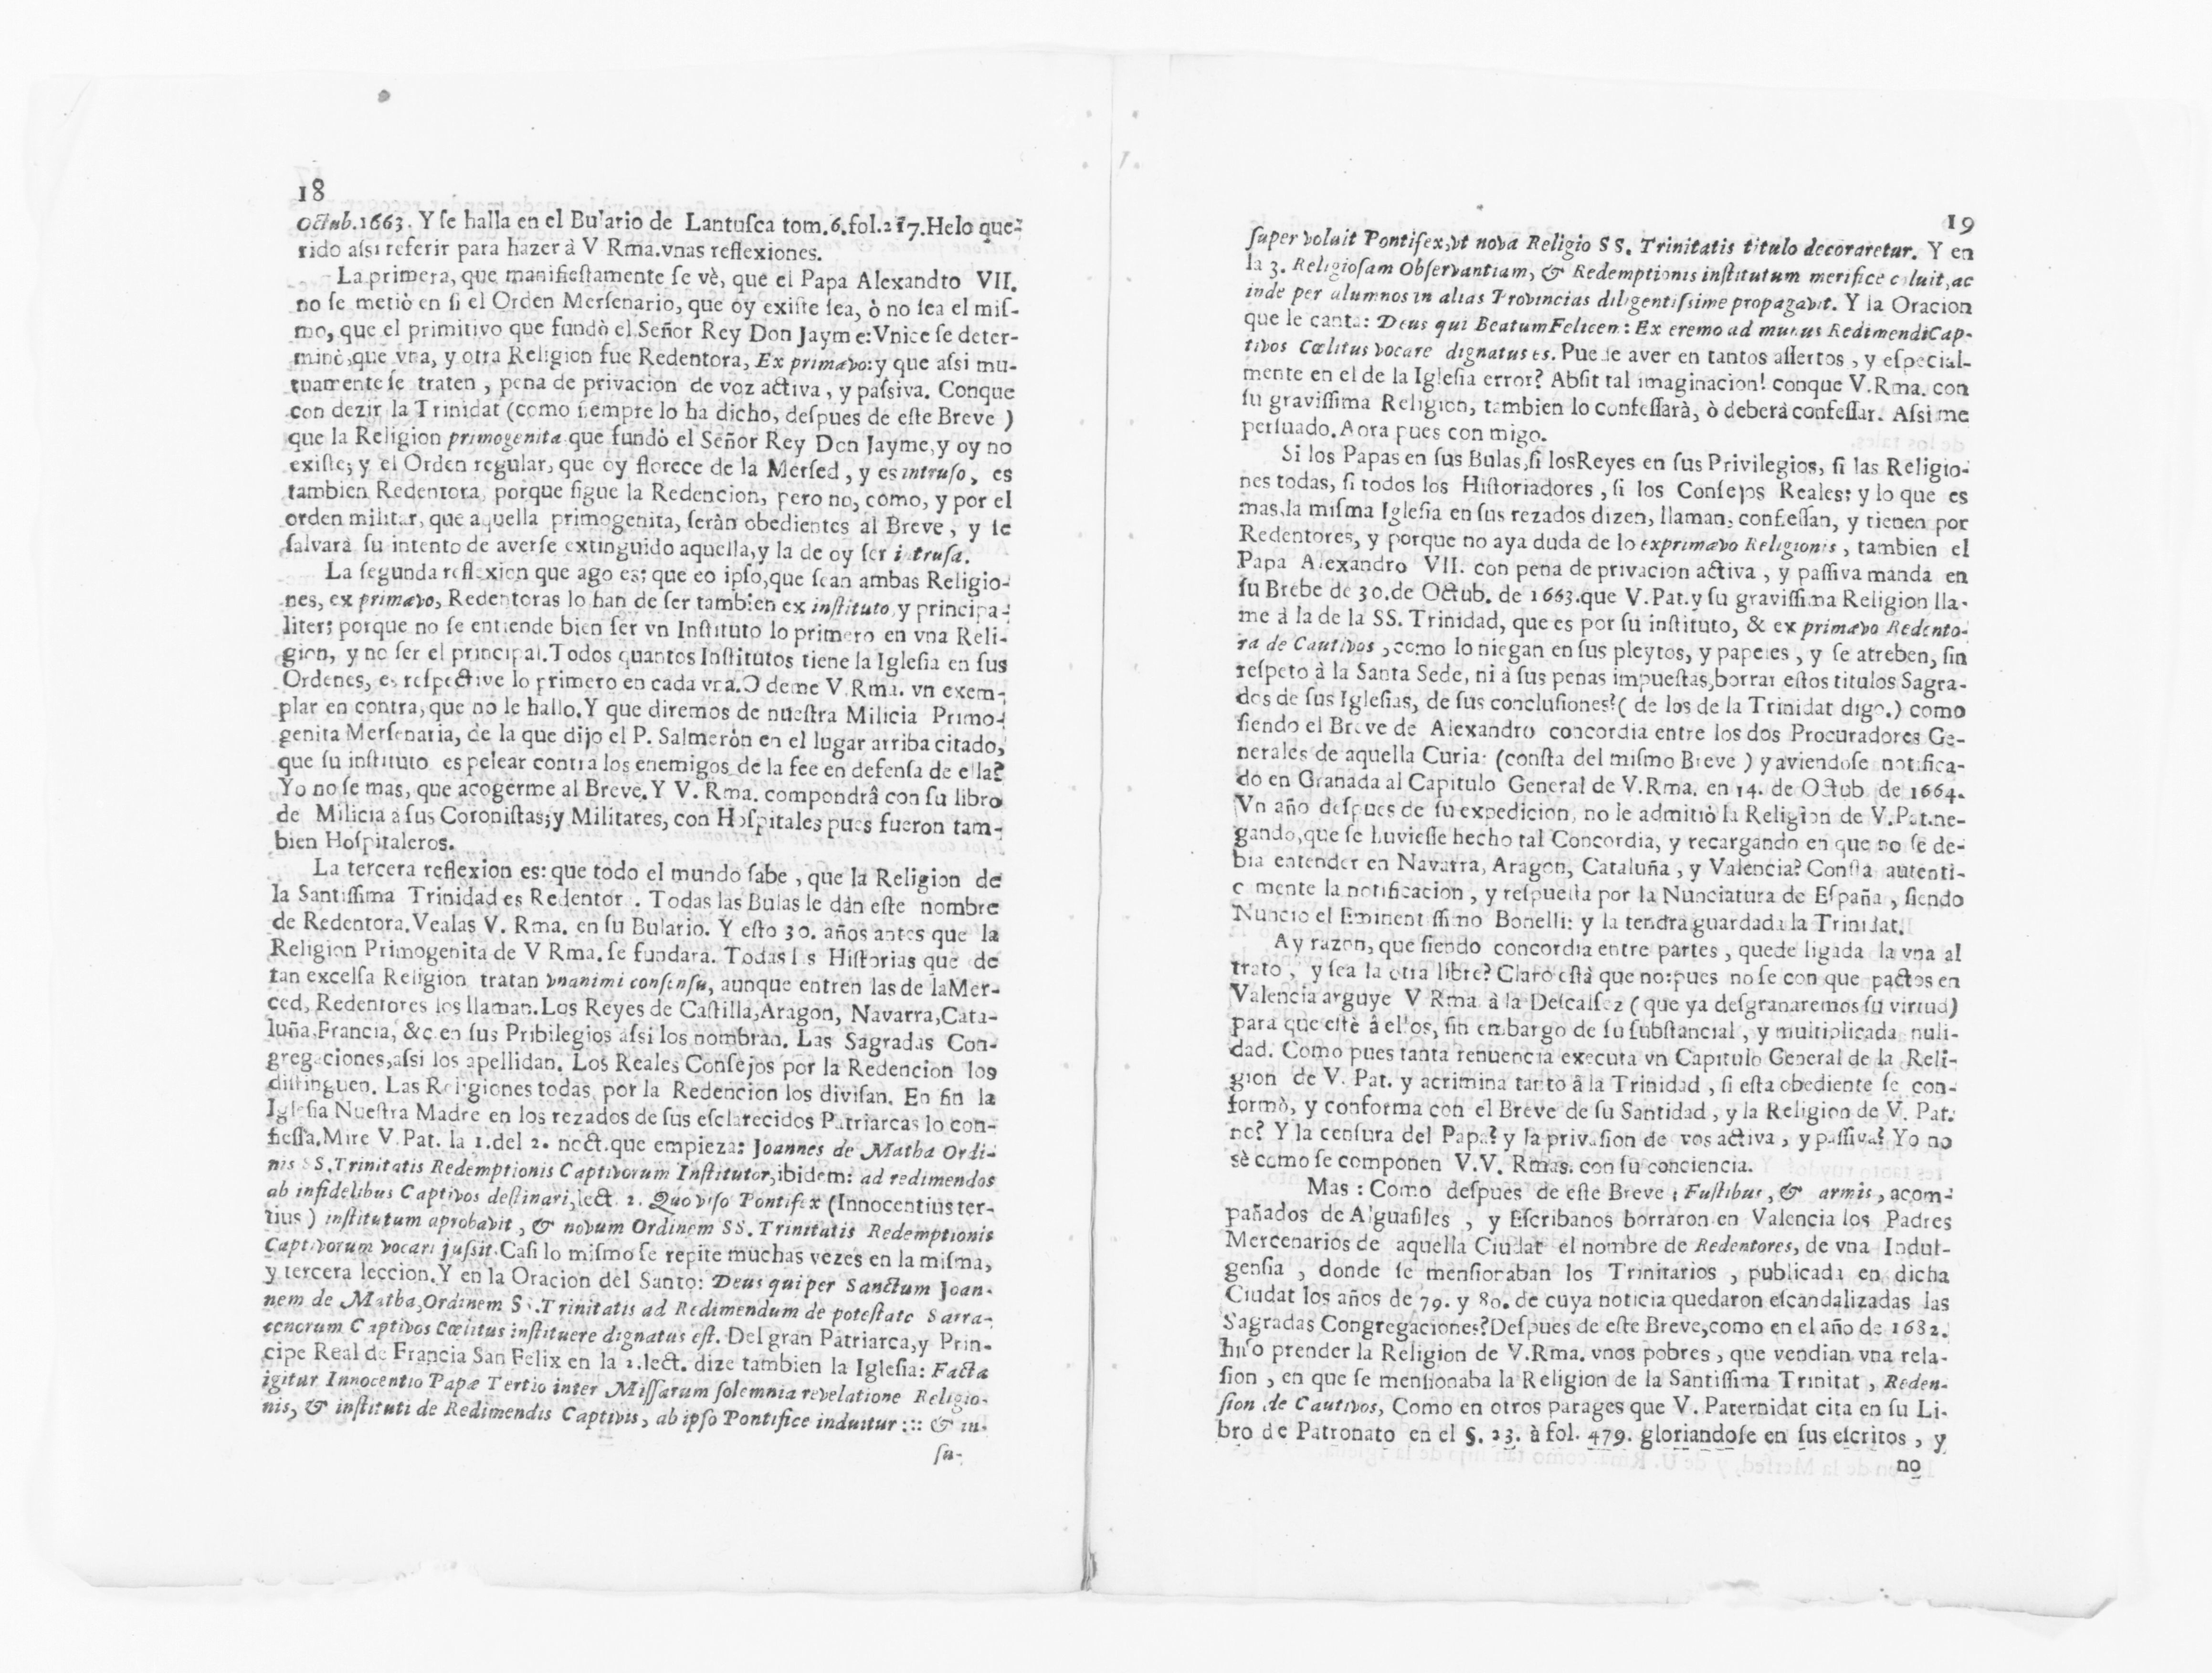 18
Octub.1663. Y ſe halla en el Bulario de Lantuſca tom.6.fol.217.Helo que-
rido aſsi referir para hazer à V Rma.vnas reflexiones.
La primera, que manifieſtamente ſe vè, que el Papa Alexandro VII.
no ſe metiò en ſi el Orden Merſenario, que oy exiſte ſea, ò no ſea el miſ-
mo, que el primitivo que fundò el Señor Rey Don Jayme:Vnice ſe deter-
minò,que vna, y otra Religion fue Redentora, Ex primævo:y que aſsi mu-
tuamente ſe traten , pena de privacion de voz activa , y paſsiva. Conque
con dezir la Trinidat (como ſiempre lo ha dicho, deſpues de eſte Breve )
que la Religion primogenita que fundò el Señor Rey Don Jayme,y oy no
exiſte; y el Orden regular, que oy florece de la Merſed , y es intruſo, es
tambien Redentora, porque ſigue la Redencion, pero no, como, y por el
orden militar, que aquella primogenita, ſeràn obedientes al Breve , y ſe
ſalvarà ſu intento de averſe extinguido aquella,y la de oy ſer intruſa.
La ſegunda reflexion que ago es: que eo ipſo,que ſean ambas Religio-
nes, ex primævo, Redentoras lo han de ſer tambien ex inſtituto, y principa-
liter; porque no ſe entiende bien ſer vn Inſtituto lo primero en vna Reli-
gion, y no ſer el principal.Todos quantos Inſtitutos tiene la Igleſia en ſus
Ordenes, es reſpective lo primero en cada vna.O deme V.Rma. vn exem-
plar en contra,que no le hallo.Y que diremos de nueſtra Milicia Primo-
genita Merſenaria, de la que dijo el P. Salmeròn en el lugar arriba citado,
que ſu inſtituto es pelear contra los enemigos de la fee en defenſa de ella?
Yo no ſe mas, que acogerme al Breve.Y V. Rma. compondrâ con ſu libro
de Milicia à ſus Coroniſtas;y Militares, con Hoſpitales pues fueron tam-
bien Hoſpitaleros.
La tercera reflexion es: que todo el mundo ſabe , que la Religion de
la Santiſſima Trinidad es Redentor . Todas las Bulas le dàn eſte nombre
de Redentora.Vealas V. Rma. en ſu Bulario. Y eſto 30. años antes que la
Religion Primogenita de V Rma. ſe fundara. Todas las Hiſtorias que de
tan excelſa Religion tratan vnanimi conſenſu, aunque entren las de laMer-
ced, Redentores los llaman.Los Reyes de Caſtilla,Aragon, Navarra,Cata-
luña,Francia, &c.en ſus Pribilegios aſsi los nombran. Las Sagradas Con-
gregaciones,aſsi los apellidan. Los Reales Conſejos por la Redencion los
diſtinguen. Las Religiones todas, por la Redencion los diviſan. En fin la
Igleſia Nueſtra Madre en los rezados de ſus eſclarecidos Patriarcas lo con-
fieſſa.Mire V.Pat. la 1.del 2. noct.que empieza: Joannes de Matha Ordi-
nis SS.Trinitatis Redemptionis Captivorum Inſtitutor,ibidem: ad redimendos
ab infidelibus Captivos deſtinari,lect. 2. Quo viſo Pontifex (Innocentius ter-
tius ) inſtitutum aprobavit , & novum Ordinem SS. Trinitatis Redemptionis
Captivorum vocari juſsit.Caſi lo miſmo ſe repite muchas vezes en la miſma,
y tercera leccion.Y en la Oracion del Santo: Deus qui per Sanctum Joan-
nem de Matha,Ordinem SS.Trinitatis ad Redimendum de poteſtate Sarra-
cenorum Captivos Cœlitus inſtituere dignatus eſt. Del gran Patriarca,y Prin-
cipe Real de Francia San Felix en la 2.lect. dize tambien la Igleſia: Facta
igitur Innocentio Papæ Tertio inter Miſſarum ſolemnia revelatione Religio-
nis, & inſtituti de Redimendis Captivis, ab ipſo Pontifice induitur ::: & in-
ſu-
19
ſuper voluit Pontifex,vt nova Religio SS. Trinitatis titulo decoraretur. Y en
la 3. Religioſam Obſervantiam, & Redemptionis inſtitutum merifice coluit,ac
inde per alumnos in alias Provincias diligentiſsime propagavit. Y la Oracion
que le canta: Deus qui Beatum Felicem: Ex eremo ad munus Redimendi Cap-
tivos Cœlitus vocare dignatus es. Puede aver en tantos aſſertos , y eſpecial-
mente en el de la Igleſia error? Abſit tal imaginacion! conque V.Rma. con
ſu graviſſima Religion, tambien lo confeſſarà, ò deberà confeſſar. Aſsi me
perſuado.Aora pues con migo.
Si los Papas en ſus Bulas,ſi losReyes en ſus Privilegios, ſi las Religio-
nes todas, ſi todos los Hiſtoriadores , ſi los Conſejos Reales: y lo que es
mas,la miſma Igleſia en ſus rezados dizen, llaman, confeſſan, y tienen por
Redentores, y porque no aya duda de lo exprimævo Religionis , tambien el
Papa Alexandro VII. con pena de privacion activa , y paſſiva manda en
ſu Brebe de 30.de Octub. de 1663.que V.Pat.y ſu graviſſima Religion lla-
me à la de la SS. Trinidad, que es por ſu inſtituto, & ex primævo Redento-
ra de Cautivos ,como lo niegan en ſus pleytos, y papeles , y ſe atreben, ſin
reſpeto à la Santa Sede, ni à ſus penas impueſtas,borrar eſtos titulos Sagra-
dos de ſus Igleſias, de ſus concluſiones?( de los de la Trinidat digo.) como
ſiendo el Breve de Alexandro concordia entre los dos Procuradores Ge-
nerales de aquella Curia: (conſta del miſmo Breve ) y aviendoſe notifica-
do en Granada al Capitulo General de V.Rma. en 14. de Octub de 1664.
Vn año deſpues de ſu expedicion, no le admitiò la Religion de V.Pat.ne-
gando,que ſe huvieſſe hecho tal Concordia, y recargando en que no ſe de-
bia entender en Navarra, Aragon, Cataluña , y Valencia? Conſta autenti-
c mente la notificacion , y reſpueſta por la Nunciatura de Eſpaña , ſiendo
Nuncio el Eminentiſſimo Bonelli: y la tendra guardada la Trinidat.
Ay razon, que ſiendo concordia entre partes , quede ligada la vna al
trato , y ſea la otra libre? Claro eſtà que no:pues no ſe con que pactos en
Valencia arguye V Rma à la Deſcalſez ( que ya deſgranaremos ſu virtud)
para que eſtè â ellos, ſin embargo de ſu ſubſtancial , y multiplicada nuli-
dad. Como pues tanta renuencia executa vn Capitulo General de la Reli-
gion de V. Pat. y acrimina tanto â la Trinidad , ſi eſta obediente ſe con-
formò, y conforma con el Breve de ſu Santidad , y la Religion de V. Pat.
no? Y la cenſura del Papa? y la privaſion de vos activa , y paſſiva? Yo no
sè como ſe componen V.V. Rmas. con ſu conciencia.
Mas : Como deſpues de eſte Breve ; Fuſtibus , & armis , acom-
pañados de Alguaſiles , y Eſcribanos borraron en Valencia los Padres
Mercenarios de aquella Ciudat el nombre de Redentores, de vna Indul-
genſia , donde ſe menſionaban los Trinitarios , publicada en dicha
Ciudat los años de 79. y 80. de cuya noticia quedaron eſcandalizadas las
Sagradas Congregaciones?Deſpues de eſte Breve,como en el año de 1682.
hiſo prender la Religion de V.Rma. vnos pobres , que vendian vna rela-
ſion , en que ſe menſionaba la Religion de la Santiſſima Trinitat , Reden-
ſion de Cautivos, Como en otros parages que V. Paternidat cita en ſu Li-
bro de Patronato en el §. 23. à fol. 479. gloriandoſe en ſus eſcritos , y
no